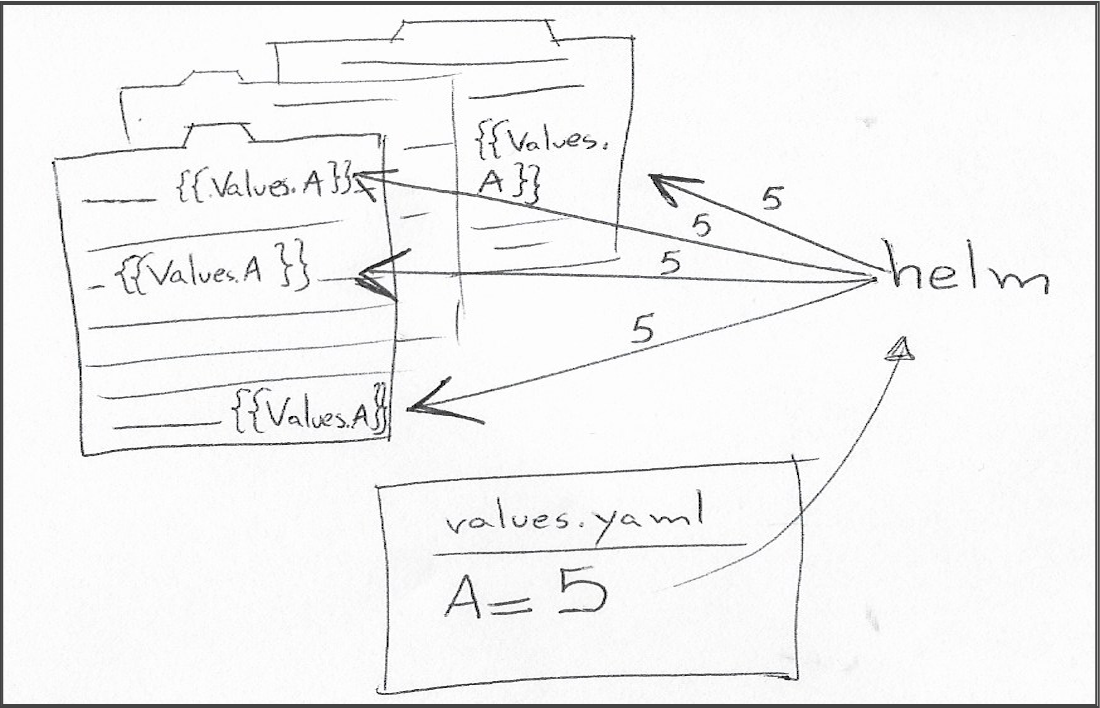 {{Values.
A}}
{{.Values.A}}
{{Values.A }}
{{Values.A}
5
5
5
5
helm
values.yaml
A = 5